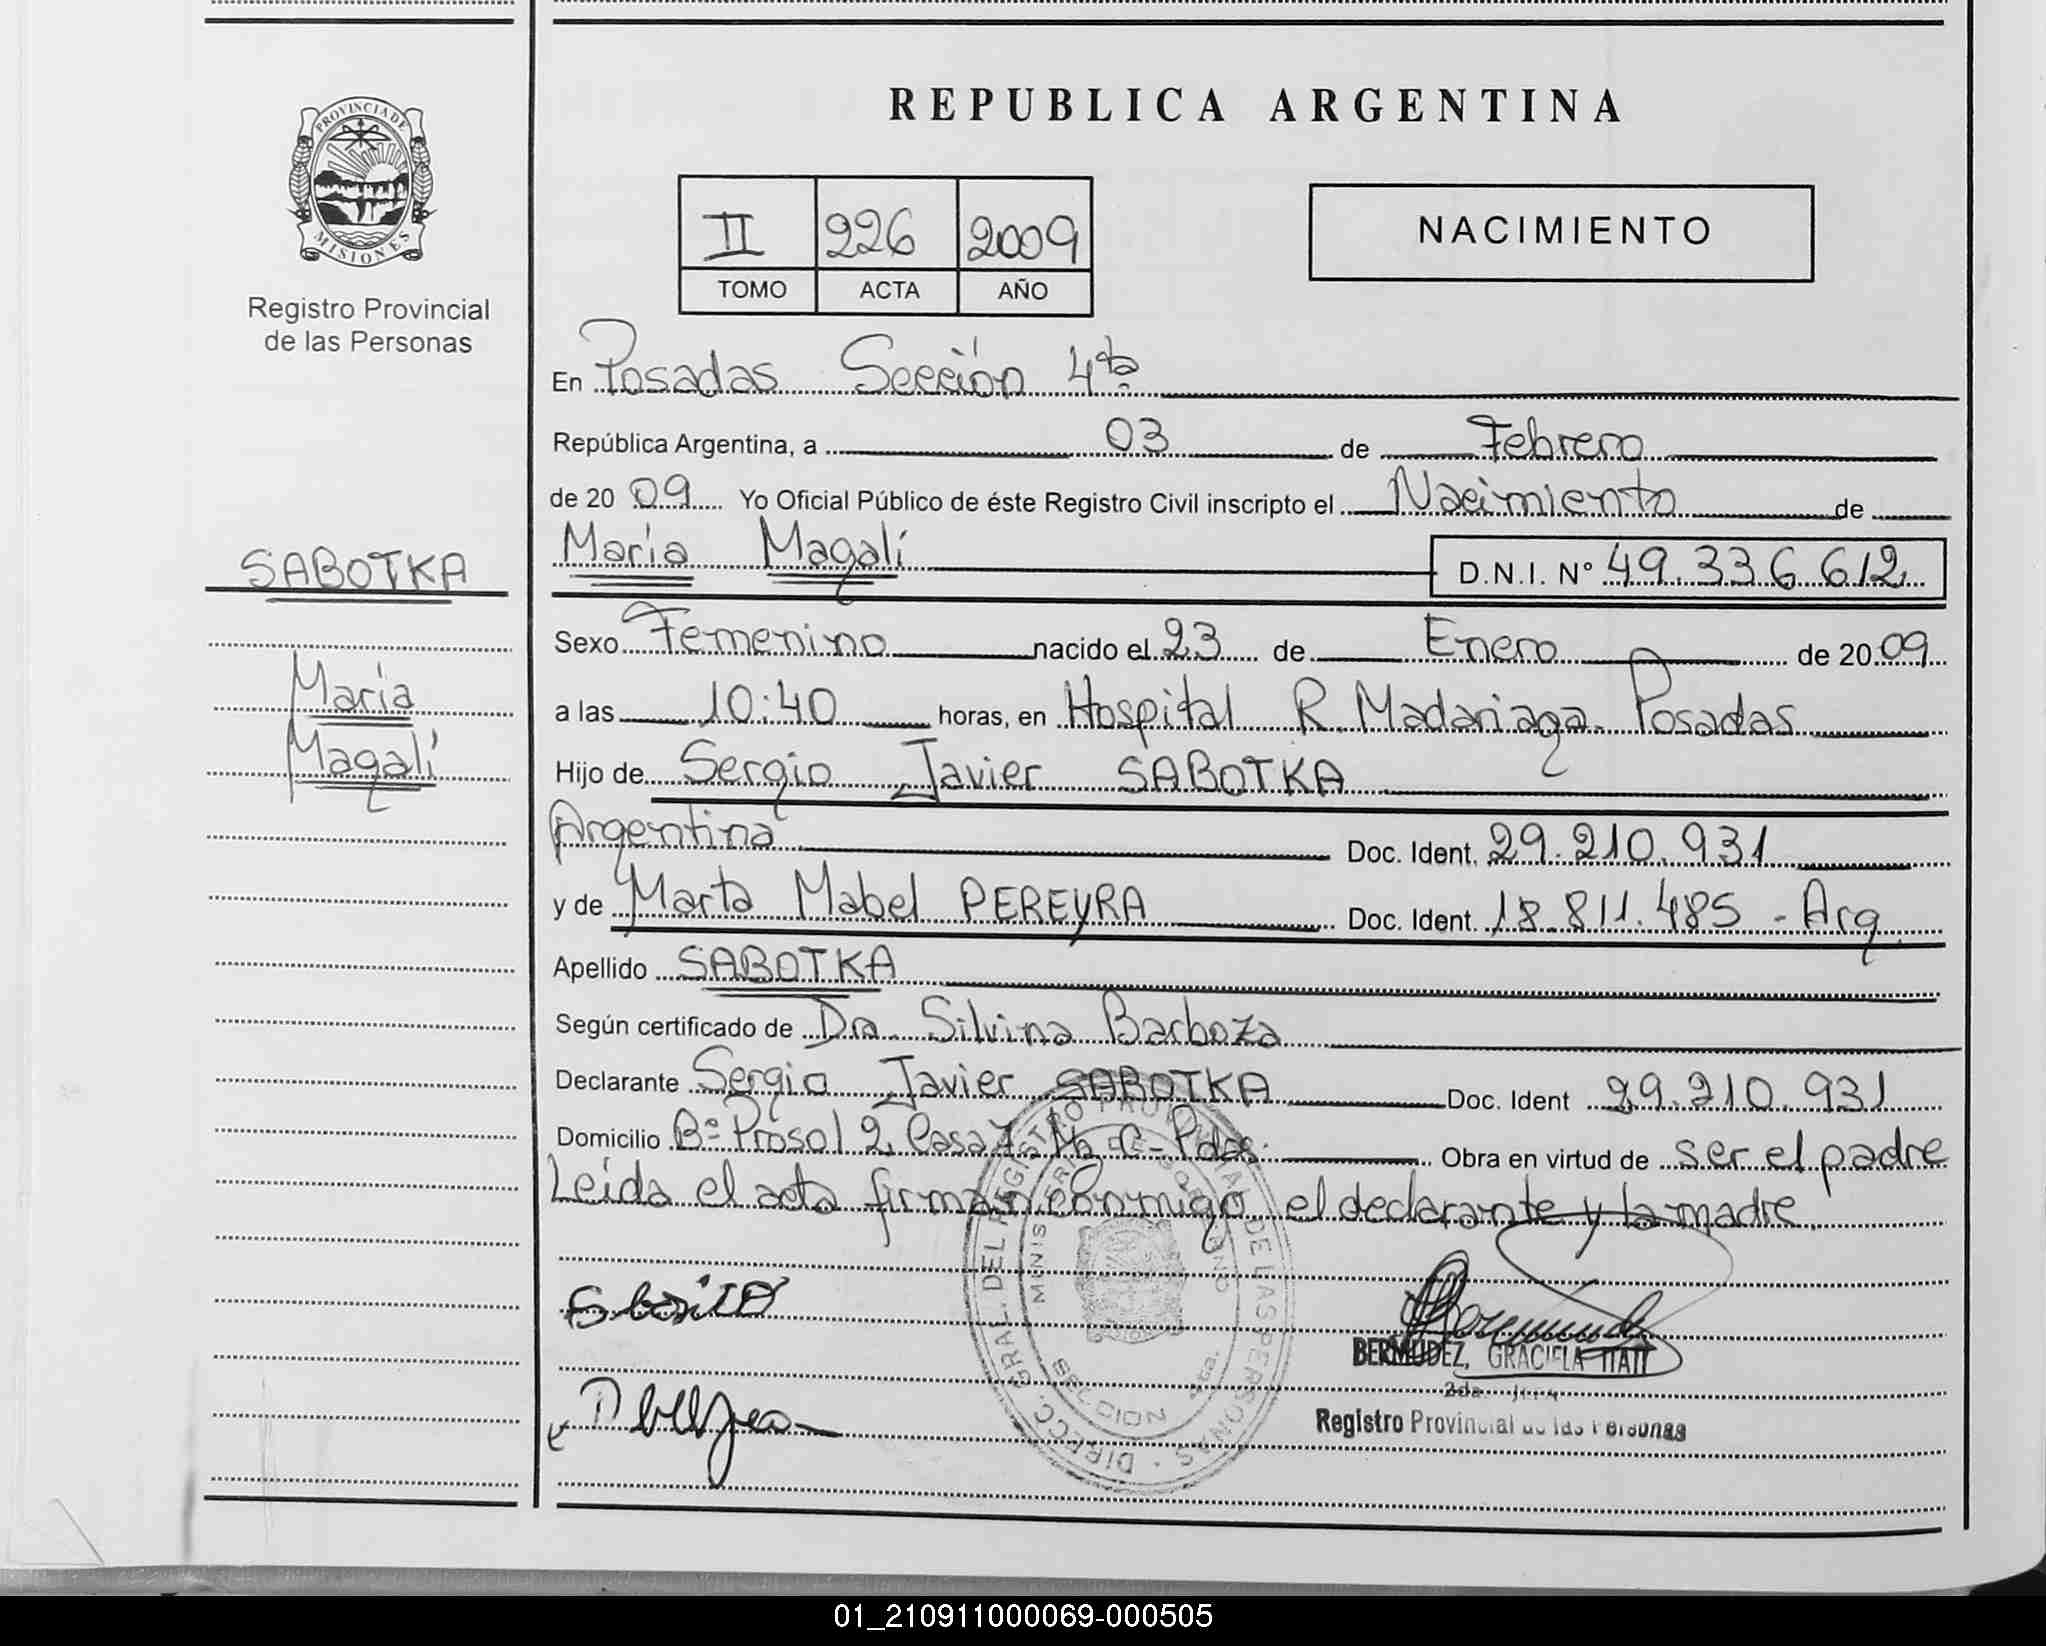 PROVINCIA DE
MISIONES
Registro Provincial
de las Personas
SABOTKA
María
Magalí
REPUBLICA ARGENTINA
II 226 2009
TOMO ACTA AÑO
NACIMIENTO
En Posadas Sección 4ta
República Argentina, a 03 de Febrero
de 2009 Yo Oficial Público de éste Registro Civil inscripto el Nacimiento de
María Magalí D.N.I. N° 49.336.612
Sexo Femenino nacido el 23 de Enero de 2009
a las 10:40 horas, en Hospital R. Madariaga. Posadas
Hijo de Sergio Javier SABOTKA
Argentina Doc. Ident. 29.210.931
y de Marta Mabel PEREYRA Doc. Ident. 18.811.485 - Arg.
Apellido SABOTKA
Según certificado de Dra. Silvina Barboza
Declarante Sergio Javier SABOTKA Doc. Ident 29.210.931
Domicilio B° Prosol 2, Casa 7 Mz C - Pdas. Obra en virtud de ser el padre
Leída el acta firman conmigo el declarante y la madre.
DIRECC. GRAL. DEL REGISTRO DE LAS PERSONAS
BERMUDEZ, GRACIELA ITATI
2da.
Registro Provincial de las Personas
01_210911000069-000505